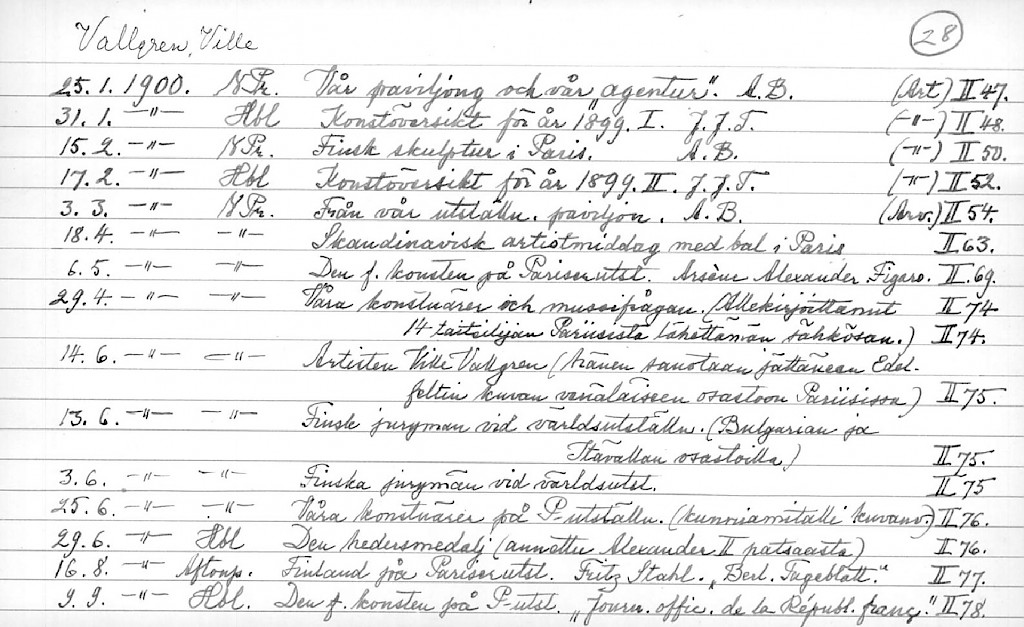 Vallgren, Ville 28
25.1. 1900. N.Pr. Vår paviljong och vår "agentur". A.B. (Art) II 47.
31.1. -"- Hbl Konstöversikt för år 1899. I. J.J.T. (-"-) II 48.
15.2. -"- N.Pr. Finsk skulptur i Paris. A.B. (-"-) II 50.
17.2. -"- Hbl Konstöversikt för år 1899. II. J.J.T. (-"-) II 52.
3.3. -"- N.Pr. Från vår utställn. paviljon. A.B. (Arv.) II 54.
18.4. -"- -"- Skandinavisk artistmiddag med bal i Paris II 63.
6.5. -"- -"- Den f. konsten på Pariserutst. Arsène Alexander Figaro. II 69.
29.4. -"- -"- Våra konstnärer och musifrågan. (Allekirjoittanut II 74
14 taiteilijan Pariisista lähettämän sähkösan.) II 74.
14.6. -"- -"- Artisten Ville Vallgren (hänen sanotaan jättäneen Edel-
feltin kuvan venäläiseen osastoon Pariisissa) II 75.
13.6. -"- -"- Finsk juryman vid världsutställn. (Bulgarian ja
Itävallan osastoilla) II 75.
3.6. -"- -"- Finska jurymän vid världsutst. II 75
25.6. -"- -"- Våra konstnärer på P-utställn. (kunniamitalli kuvanv.) II 76.
29.6. -"- Hbl Den hedersmedalj (annettu Alexander II patsaasta) II 76.
16.8. -"- Aftonp. Finland på Pariserutst. Fritz Stahl. "Berl. Tageblatt." II 77.
9.9. -"- Hbl. Den f. konsten på P-utst. "Journ. offic. de la Républ. franç." II 78.